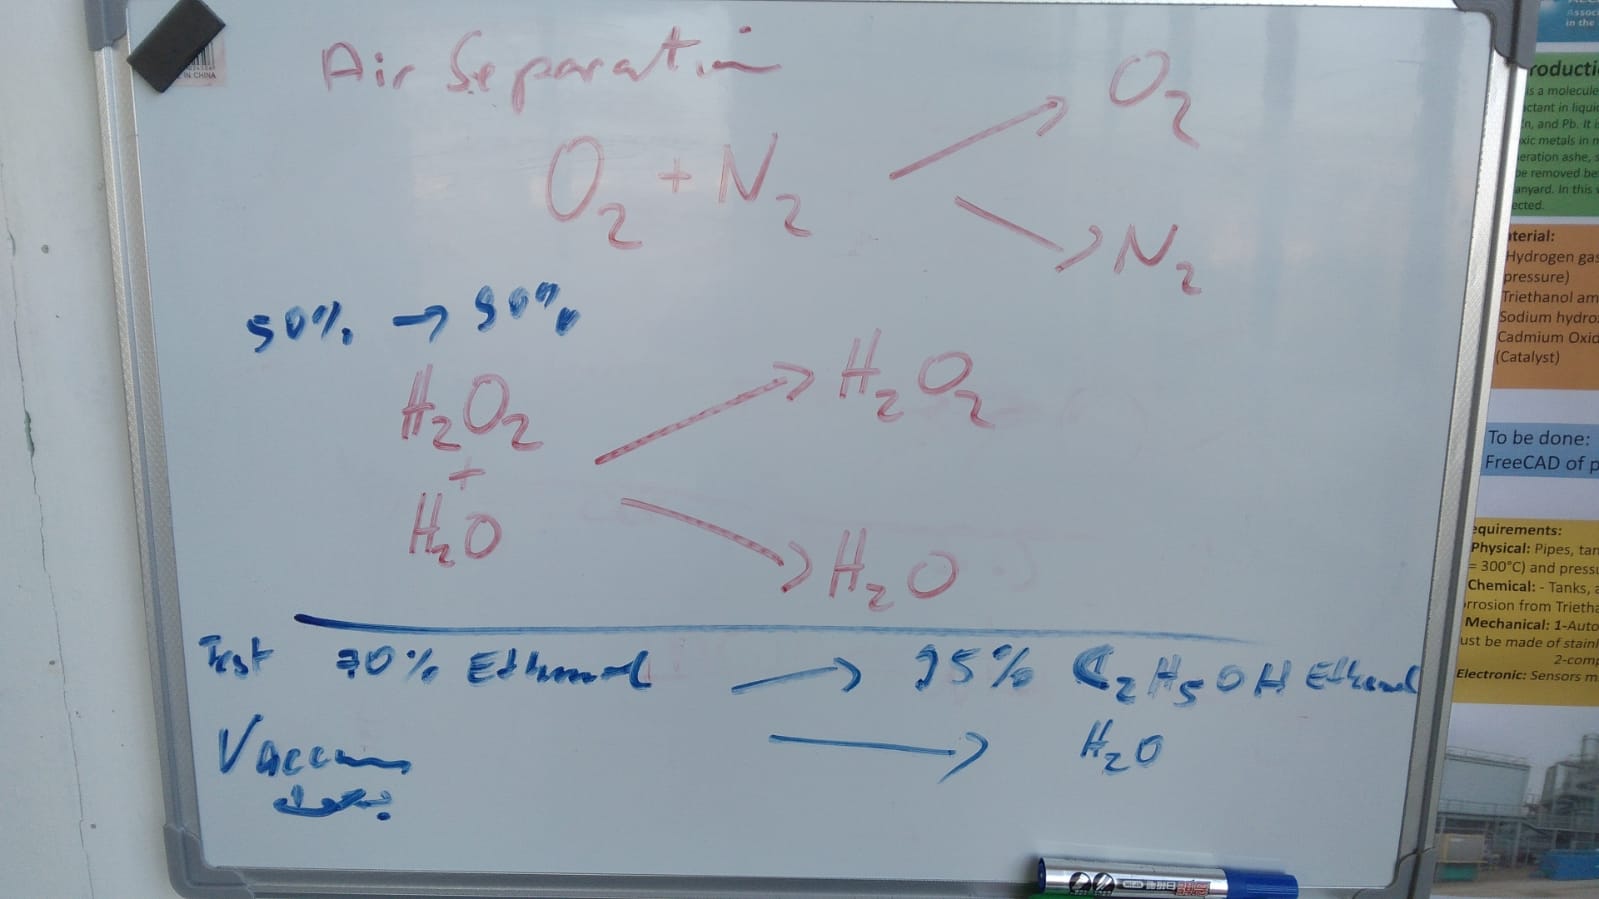 Air Separation
O2 + N2
O2
N2
50% → 90%
H2O2
+
H2O
H2O2
H2O
Test 70% Ethanol → 95% C2H5OH Ethanol
Vaccum → H2O
IN CHINA
Assoc
in the
roducti
is a molecule
ctant in liqui
n, and Pb. It i
xic metals in n
eration ashe, s
be removed be
anyard. In this
ected.
terial:
Hydrogen gas
pressure)
Triethanol am
Sodium hydro
Cadmium Oxid
(Catalyst)
To be done:
FreeCAD of p
equirements:
Physical: Pipes, tan
= 300°C) and press
Chemical: - Tanks, a
rrosion from Trietha
Mechanical: 1-Auto
ust be made of stainl
2-comp
Electronic: Sensors m